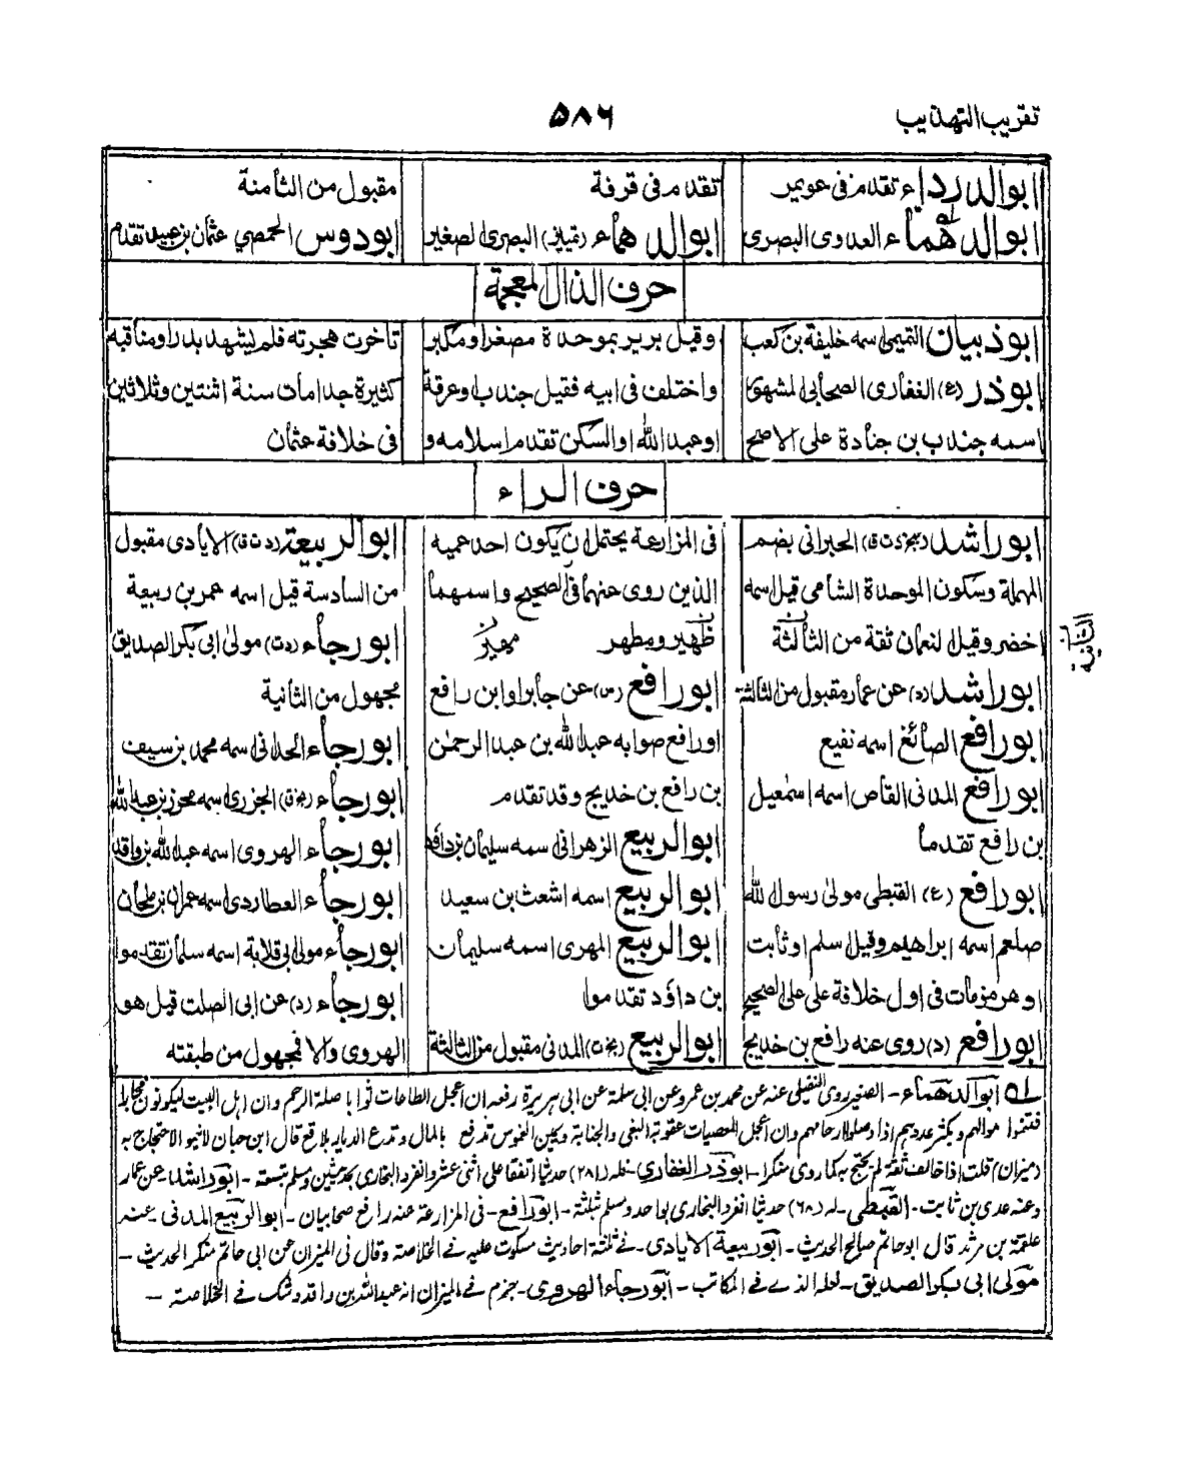 تقريب التهذيب
٥٨٦
ابوالدرداء تقدم فى عويمر
ابوالدهماء العدوى البصرى
تقدم فى قرفة
ابوالدهماء (تمييز) البصرى الصغير
مقبول من الثامنة
ابودوس الحمصي عثمان بن عبيد تقدم
حرف الذال المعجمة
ابوذبيان التميمى اسمه خليفة بن كعب
ابوذر (ع) الغفارى الصحابى المشهور
اسمه جندب بن جنادة على الاصح
وقيل برير بموحدة مصغرا ومكبر
واختلف فى ابيه فقيل جندب او عرقة
او عبد الله او السكن تقدم اسلامه و
تاخرت هجرته فلم يشهد بدرا ومناقبه
كثيرة جدا مات سنة اثنتين وثلاثين
فى خلافة عثمان
حرف الراء
ابوراشد (بخ د ت ق) الحبرانى بضم
المهملة وسكون الموحدة الشامى قيل اسمه
اخضر وقيل النعمان ثقة من الثالثة
ابوراشد (د) عن عمار مقبول من الثالثة
ابورافع الصائغ اسمه نفيع
ابورافع المدنى القاص اسمه اسمعيل
بن رافع تقدما
ابورافع (ع) القبطى مولى رسول الله
صلعم اسمه ابراهيم وقيل اسلم او ثابت
او هرمز مات فى اول خلافة على على الصحيح
ابورافع (د) روى عنه رافع بن خديج
فى المزارعة يحتمل ان يكون احد عميه
الذين روى عنهما فى الصحيح واسمهما
ظهير ومظهر
ابورافع (س) عن جابر او ابن رافع
او رافع صوابه عبد الله بن عبد الرحمن
بن رافع بن خديج وقد تقدم
ابوالربيع الزهرانى اسمه سليمان بن داؤد
ابوالربيع اسمه اشعث بن سعيد
ابوالربيع المهرى اسمه سليمان
بن داؤد تقدموا
ابوالربيع (بخ ت) المدنى مقبول من الثالثة
ابوالربيعة (د ت ق) الايادى مقبول
من السادسة قيل اسمه عمر بن ربيعة
ابورجاء (د ت) مولى ابى بكر الصديق
مجهول من الثانية
ابورجاء الحدانى اسمه محمد بن سيف
ابورجاء (بخ ق) الجزرى اسمه محرز بن عبد الله
ابورجاء الهروى اسمه عبد الله بن واقد
ابورجاء العطاردى اسمه عمران بن ملحان
ابورجاء مولى ابى قلابة اسمه سلمان تقدموا
ابورجاء (د) عن ابى الصلت قيل هو
الهروى والا فمجهول من طبقته
الثانية
له ابوالدهماء - الصغير روى النفيلى عنه عن محمد بن عمرو عن ابى سلمة عن ابى هريرة رفعه ان اعجل الطاعات ثوابا صلة الرحم وان اهل البيت ليكونون فجارا
اموالهم ويكثر عددهم اذا وصلوا ارحامهم وان اعجل المعصيات عقوبة البغى والجناية ويمين الغموس تذهب بالمال وتدع الديار بلاقع قال ابن حبان لا يجوز الاحتجاج به
(ميزان) قلت اذا خالف ثقة لم يحتج به كما روى منكرا - ابوذر الغفارى - له (٢٨١) حديثا اتفقا على اثنى عشر وانفرد البخارى بحديثين ومسلم بتسعة - ابوراشد - عن عمار
وعنه عدى بن ثابت - القبطى - له (٦٨) حديثا انفرد البخارى بواحد ومسلم بثلثة - ابورافع - فى المزارعة عنه رافع صحابيان - ابوالربيع المدنى - عنه
علقمة بن مرثد قال ابو حاتم صالح الحديث - ابوربيعة الايادى - له ثلثة احاديث سكوت عليه فى الخلاصة وقال فى الميزان عن ابى حاتم منكر الحديث -
مولى ابى بكر الصديق - لعله الذى فى المكاتب - ابورجاء الهروى - جزم فى الميزان انه عبد الله بن واقد وشك فى الخلاصة -